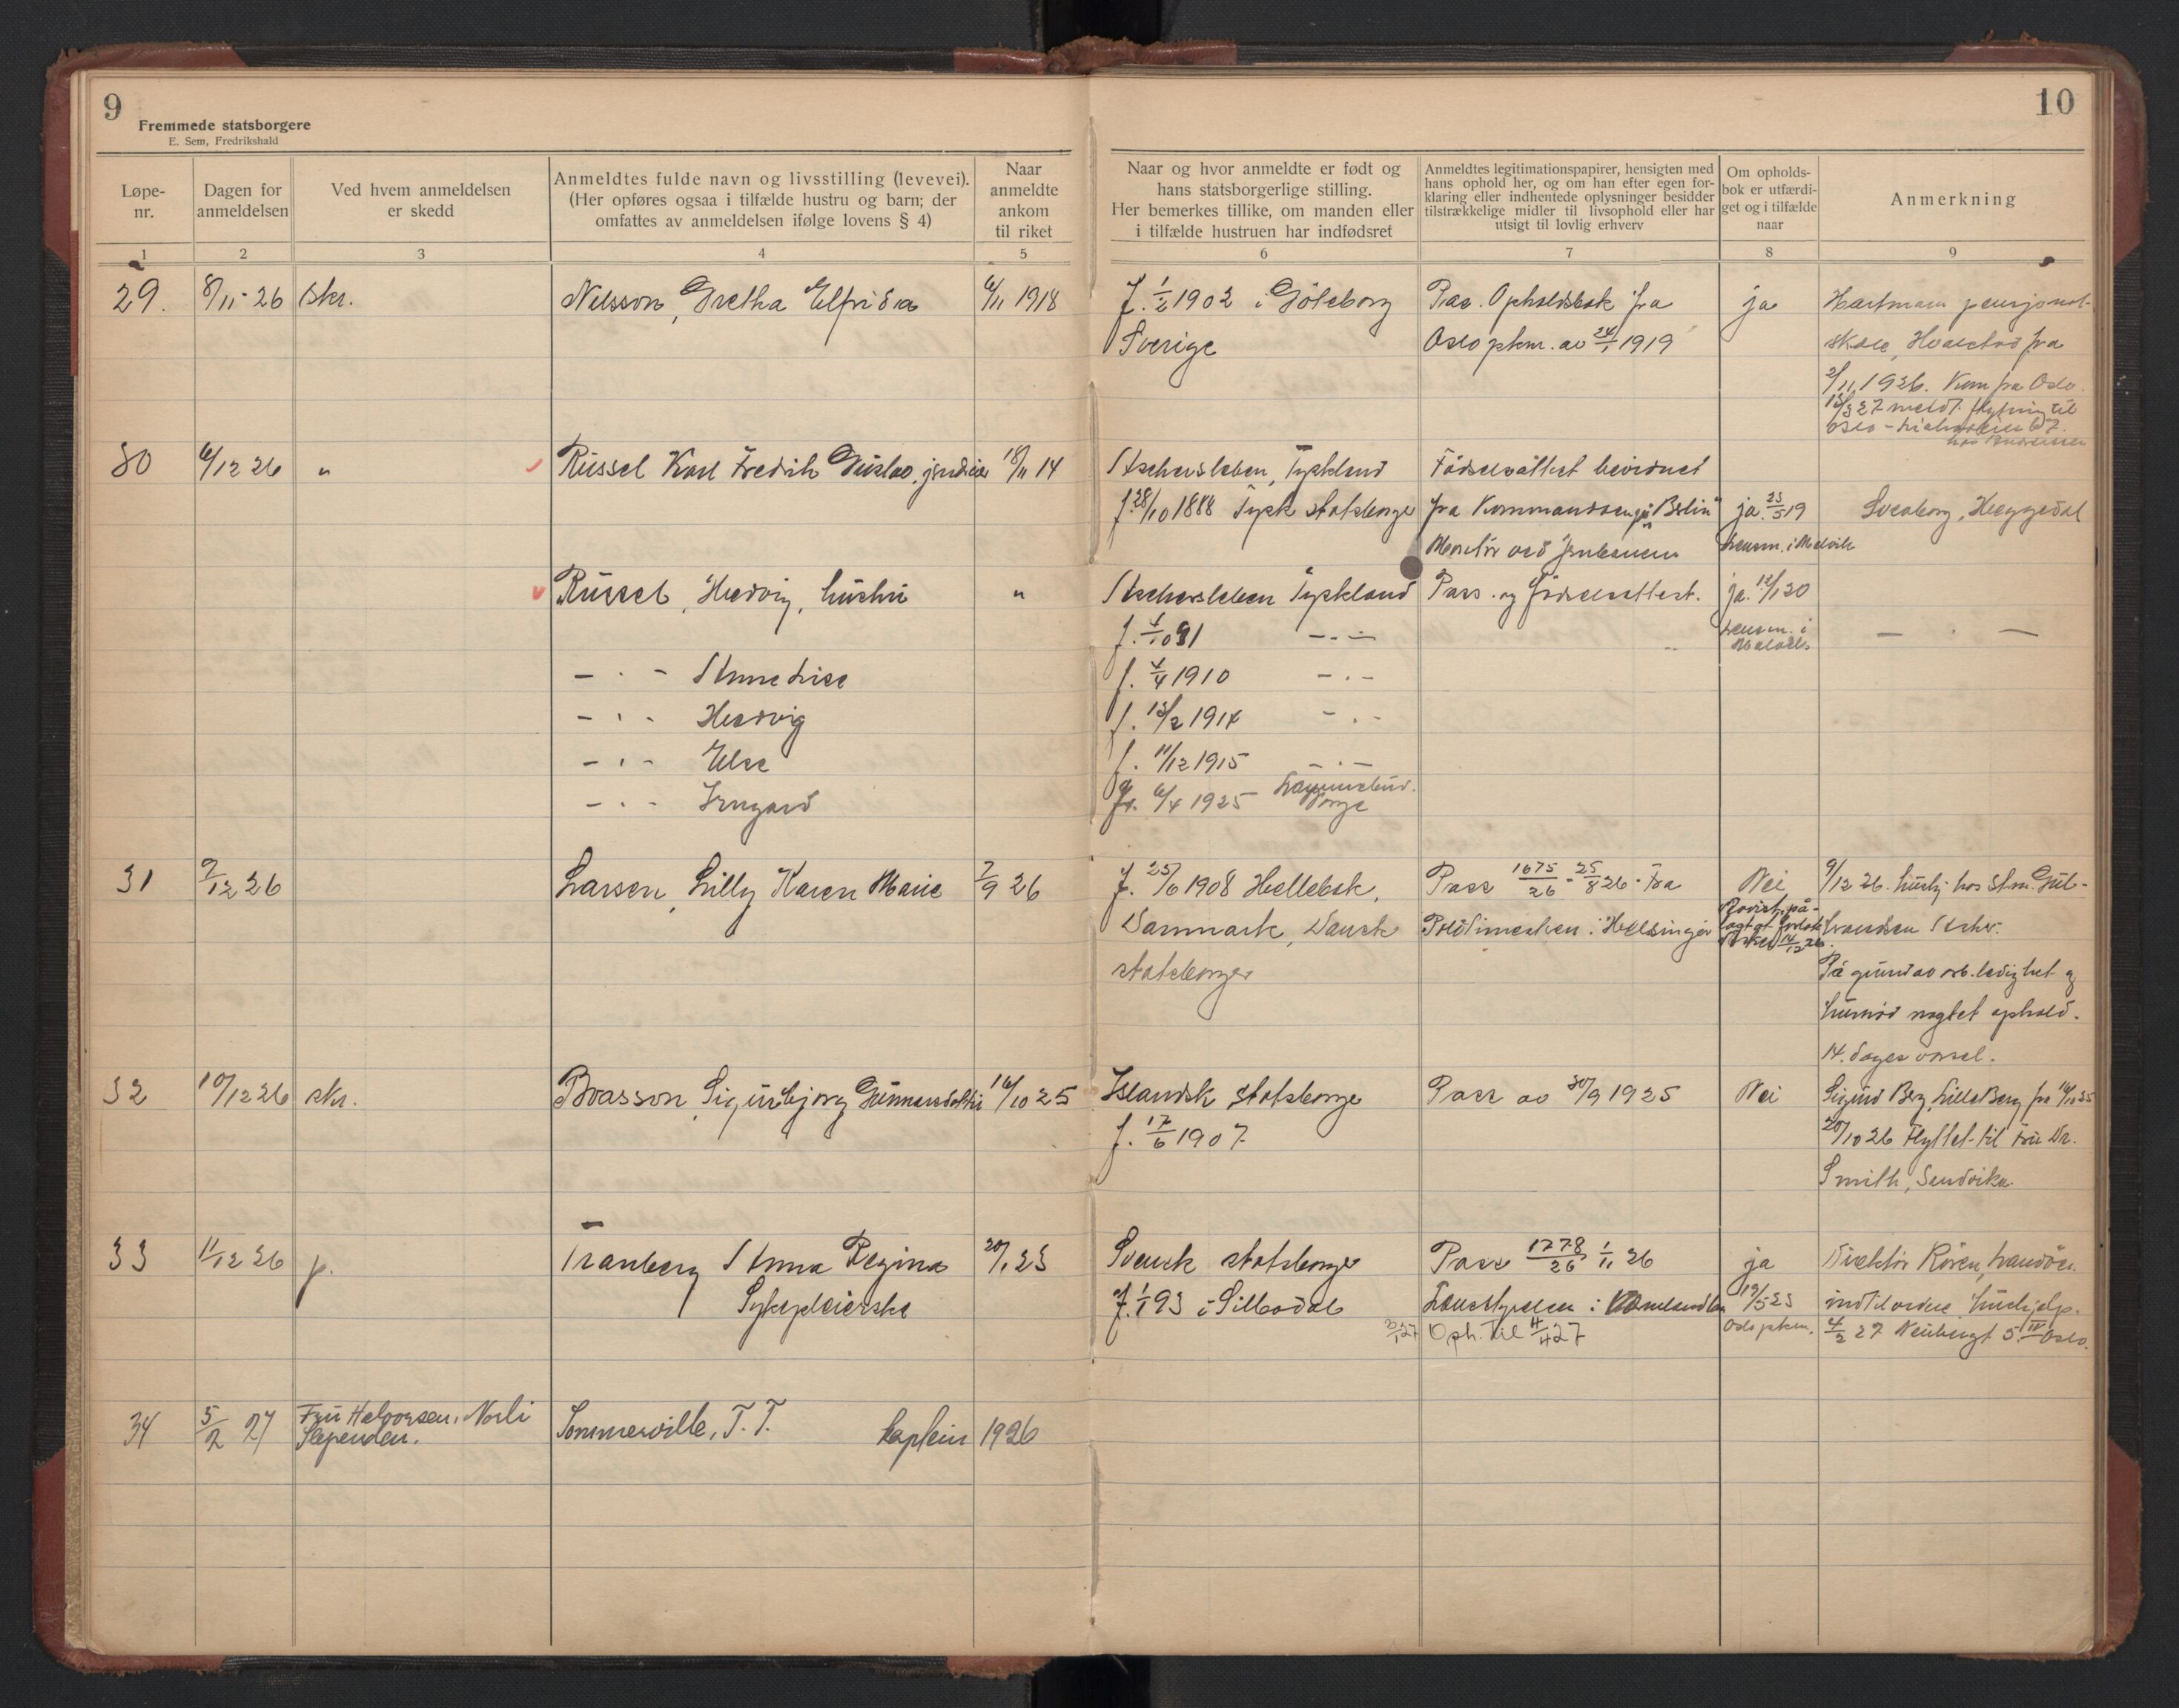 9
Fremmede statsborgere
E. Sem, Fredrikshald
Løpe-
nr.
Dagen for
anmeldelsen
Ved hvem anmeldelsen
er skedd
Anmeldtes fulde navn og livsstilling (levevei).
(Her opføres ogsaa i tilfælde hustru og barn; der
omfattes av anmeldelsen ifølge lovens § 4)
Naar
anmeldte
ankom
til riket
1 2 3 4 5
10
Naar og hvor anmeldte er født og
hans statsborgerlige stilling.
Her bemerkes tillike, om manden eller
i tilfælde hustruen har indfødsret
Anmeldtes legitimationspapirer, hensigten med
hans ophold her, og om han efter egen for-
klaring eller indhentede oplysninger besidder
tilstrækkelige midler til livsophold eller har
utsigt til lovlig erhverv
Om opholds-
bok er utfærdi-
get og i tilfælde
naar
Anmerkning
6 7 8 9
29. 8/11-26 skr. Nilsson, Gretha Elfrida 6/11 1918
F. 1/2 1902 i Göteborg
Sverige
Pas. Opholdsbok fra
Oslo pkm. av 24/1 1919
ja
Hartmann pensjonat-
skole, Hvalstad fra
2/11 1926. Kom fra Oslo.
Oslo
30 6/12 26 " Rüssel Karl Fredrik Gustav, 18/11 14
Aschersleben, Tyskland
f. 28/10 1888 Tysk statsborger
Födselsattest bevidnet
fra Kommandanten på Berlin
Montör ved jernbanen
ja 23/5 19
lensm. i Malvik
Sveaborg, Heggedal
Rüssel, Hedvig, hustru "
Aschersleben Tyskland
f. 4/10 91 -·-
Pass. og födselsattest.
ja. 12/1 20
lensm. i
Malvik
— · —
- · - Anne Lise
f. 4/4 1910 -·-
- · - Hedvig
f. 13/2 1914 -·-
- · - Else
f. 11/12 1915 -·-
- · - Irmgard
f. 6/4 1925
Norge
31 9/12 26 Larsen, Lilly Karen Marie 7/9 26
F. 25/6 1908 Hellebæk,
Danmark, Dansk
statsborger
Pass 1675/26 - 25/8 26 - Fra
Politimesteren i Helsingör
Nei
9/12 26. hushj. hos
På grund av arb.ledighet og
husnöd nægtet ophold.
14. dages varsel.
32 10/12 26 skr. Brasson, Sigurbjorg Gunnarsdottir 16/10 25
Islandsk statsborger
f. 17/6 1907
Pass av 30/9 1925
Nei
Sigurd Berg, Lille Berg fra 16/10 25
20/10 26 Flyttet til Fru Dr.
Smith, Sandvika
33 11/12 26 p. Tranberg Anna Regina 20/1 23
Sykepleierske
Svensk statsborger
F. 1/1 93 i Silbodal
Pass 1778/26 1/11 26
Länsstyrelsen i Värmlands län
3/1 27 Oph. til 4/4 27
ja
19/5 23
Oslo pkm.
Direktör Rören,
indtil videre hushjelp.
4/2 27 Neubergt 5 IV Oslo.
34 5/2 27 Fru Halvorsen, Norli
Slependen.
Sommerville, T. T. kaptein 1926